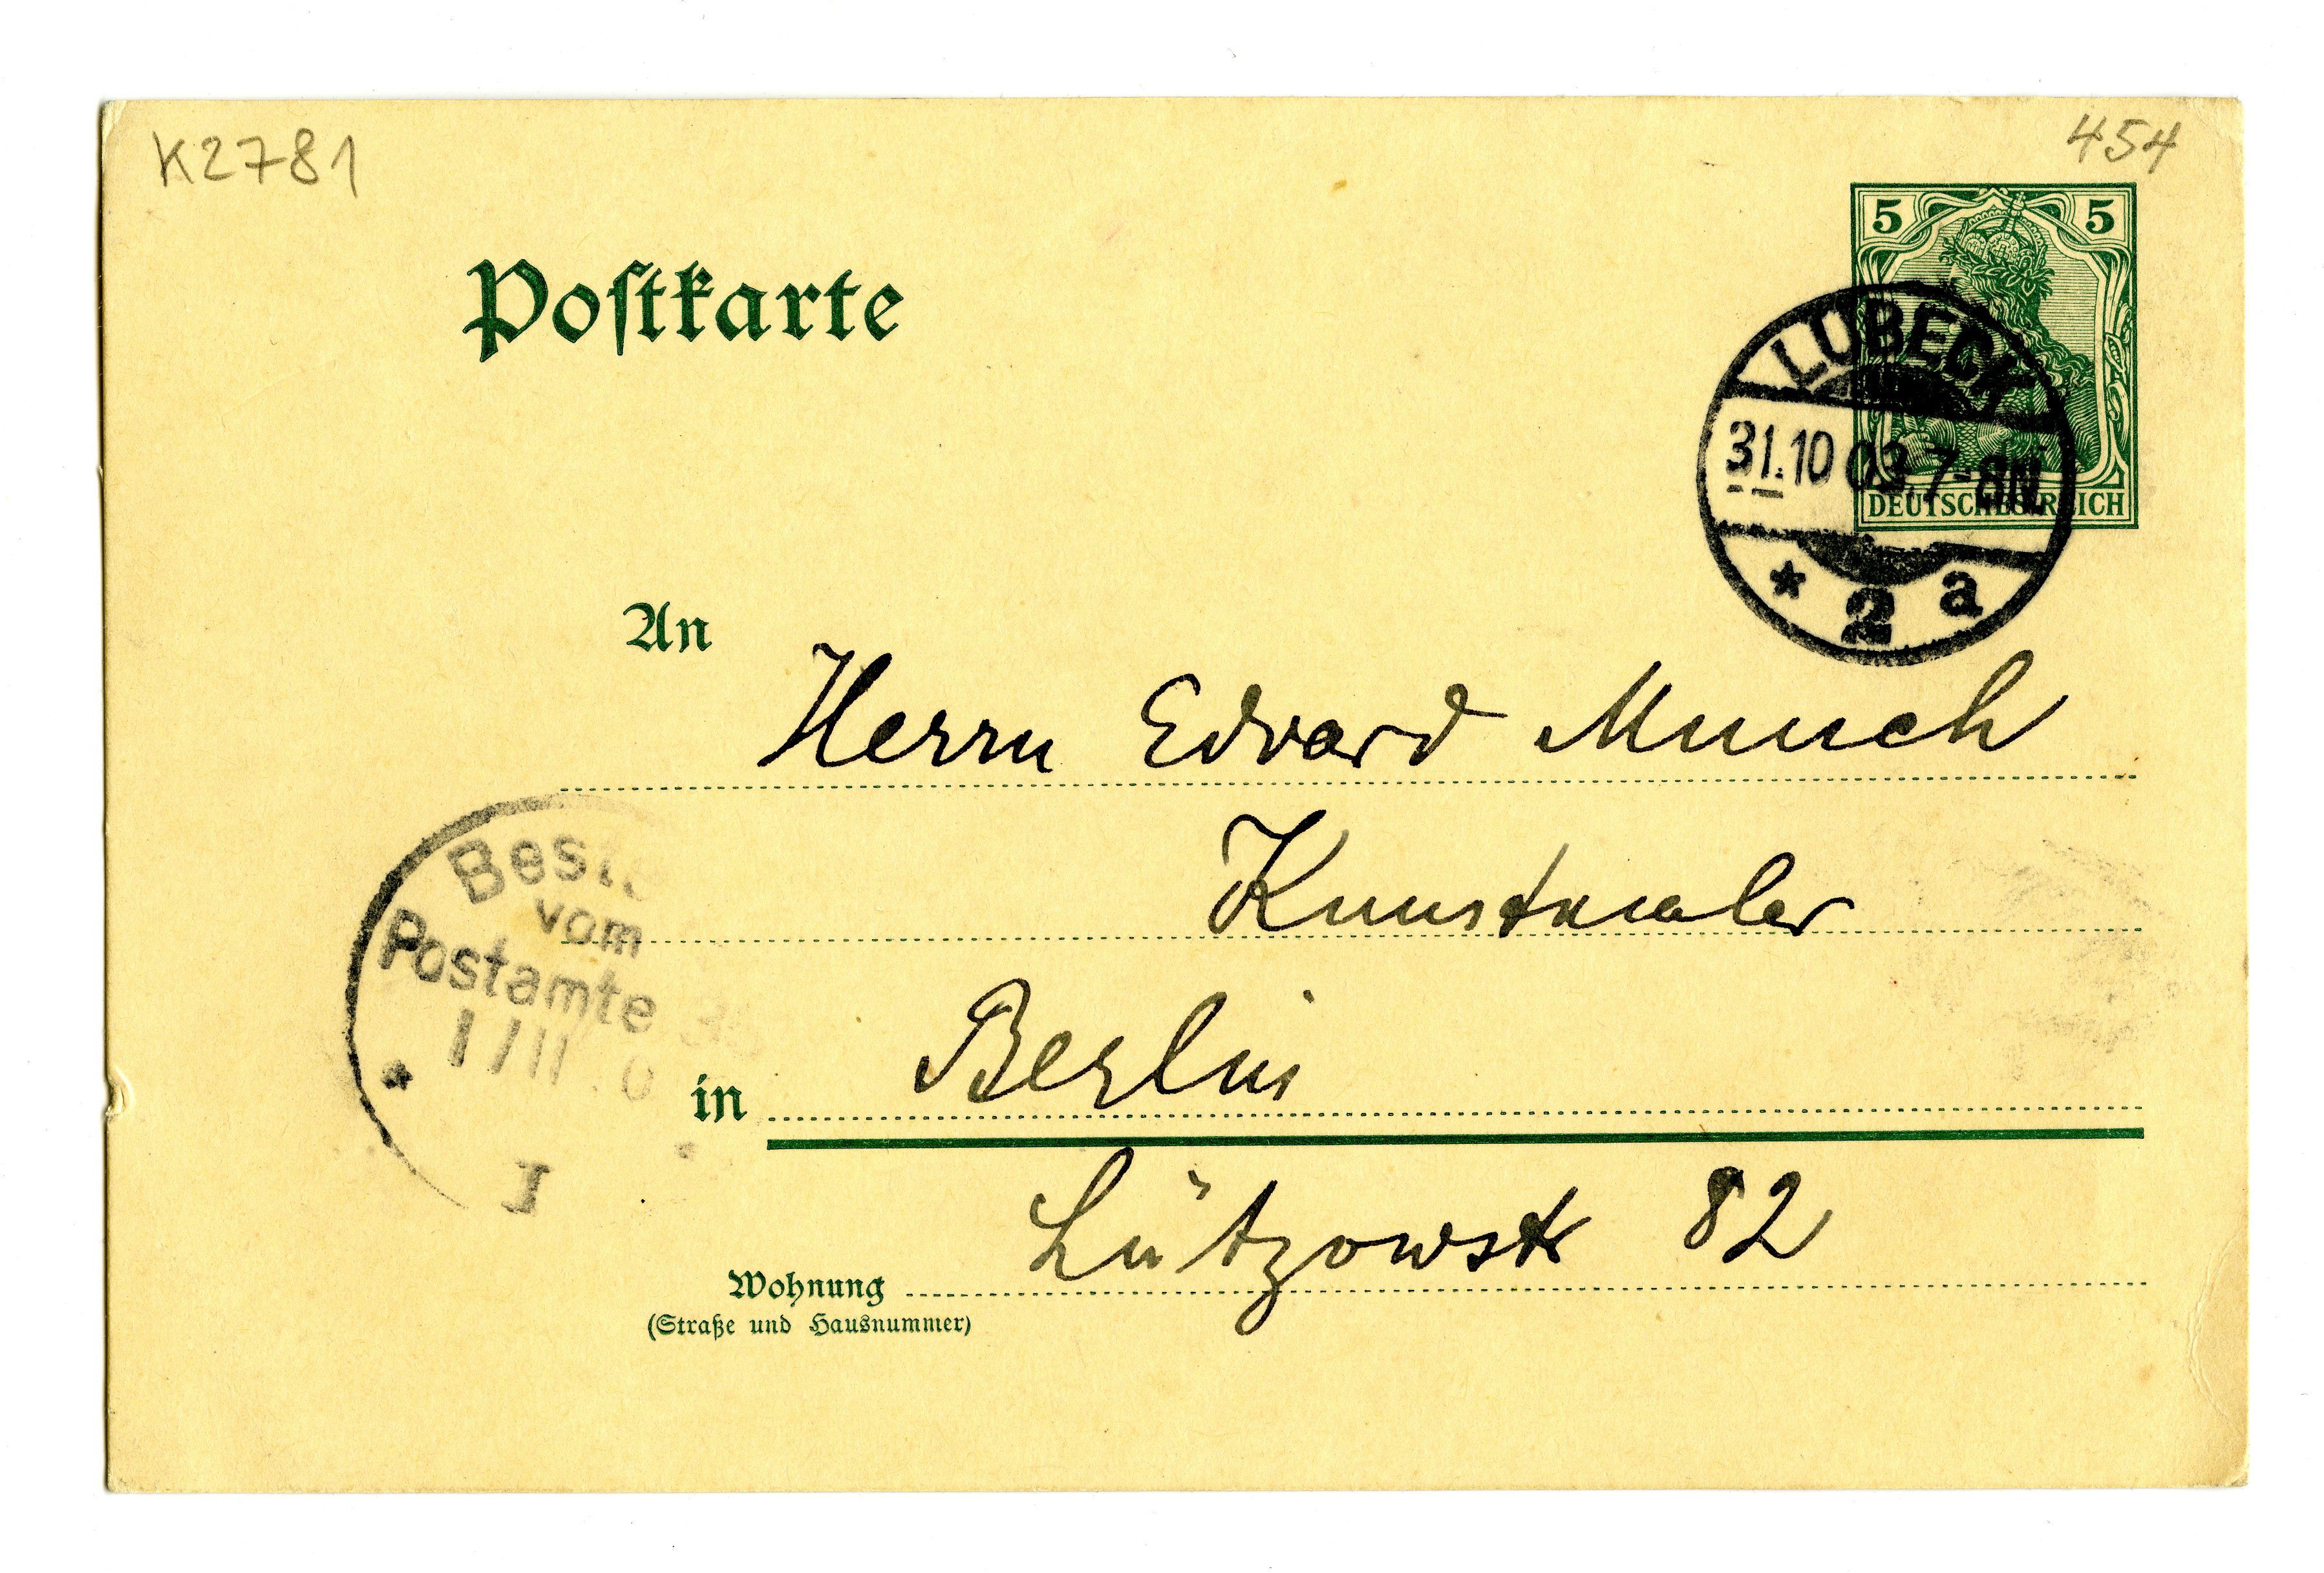 K2781
454
Postkarte
5 5
DEUTSCHES REICH
LÜBECK
31.10 03.7-8N.
* 2 a
An
Herrn Edvard Munch
Kunstmaler
Best
vom
Postamte 35
1/11.0
*
in Berlin
Lützowstr 82
Wohnung
(Straße und Hausnummer)